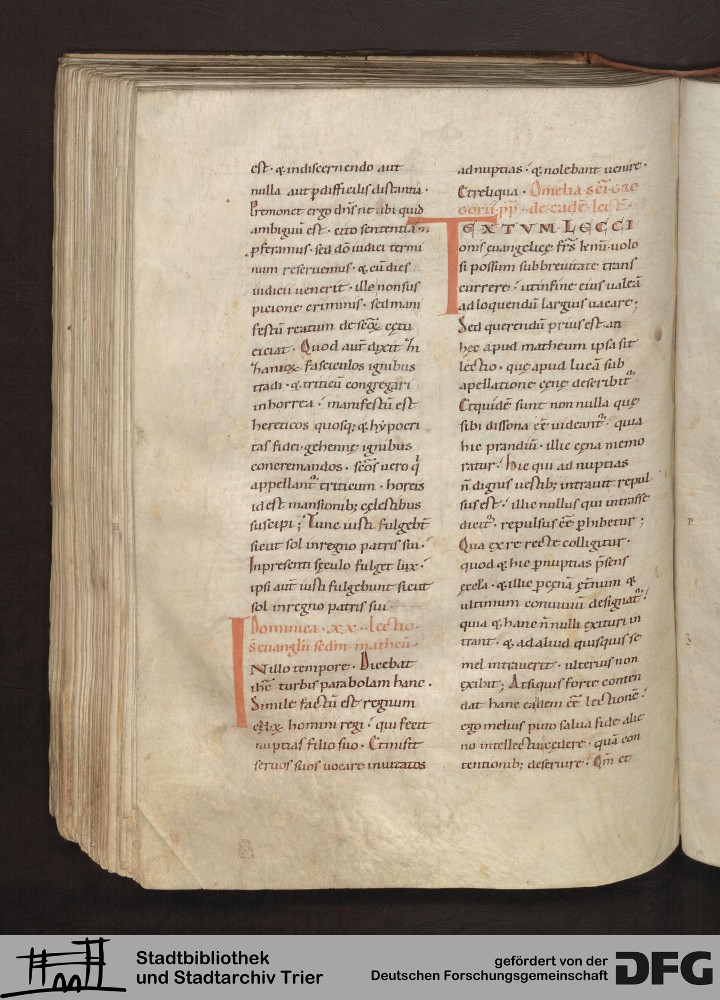 est · & indiscernendo aut
nulla aut pdifficilis distantia ·
Premonet ergo dn̄s n̄ ubi quid
ambiguū est · cito sententiam
pferamus · sed dō iudici termi
num reseruemus · & cū dies
iudicii uenerit · ille non sus
picione criminis · sed mani
festū reatum de sc̄oꝝ cętu
eiciat · Quod aut̄ dixit
zizanioꝝ fasciculos ignibus
tradi · & triticū congregari
in horrea · manifestū est
hereticos quosq; & hypocri
tas fidei · gehennę ignibus
concremandos · sc̄os uero q̇
appellant᷑ triticum · horreis
id est mansionib; cęlestibus
suscipi ; Tunc iusti fulgebt̄
sicut sol in regno patris sui ·
In presenti sęculo fulget lux ·
ipsi aut̄ iusti fulgebunt sicut
sol in regno patris sui ·
Dominica · xx · lectio ·
s̄ euanglii scd̄m matheū ·
IN illo tempore · Dicebat
ih̄c turbis parabolam hanc ·
Simile factū est regnum
cęloꝝ homini regi · qui fecit
nuptias filio suo · Et misit
seruos suos uocare inuitatos
ad nuptias · & nolebant uenire ·
Et reliqua · Omelia · sc̄i · gre
gorii · pp̄ · de eadē · lect̄ ·
TEXTVM · LECCI
onis euangelicę fr̄s km̄i · uolo
si possim sub breuitate trans
currere · ut in fine eius ualeā
ad loquendū largius uacare ;
Sed querendū prius est an
hęc apud matheum ipsa sit
lectio · quę apud lucā sub
apellatione cęnę describit᷑
Et quidē sunt non nulla quę
sibi dissona eē uideant᷑ · quia
hic prandiū · illic cęna memo
ratur · Hic qui ad nuptias
n̄ dignis uestib; intrauit repul
sus est · illic nullus qui intrasse
dicit᷑ · repulsus eē phibetur ;
Qua ex re recte colligitur ·
quod & hic p nuptias p̄sens
ęccła · & illic p cęnā ęt̄num &
ultimum conuiuiū designat᷑ ·
quia & hanc n̄ nulli exituri in
trant · & ad aliud quisquis se
mel intrauerit · ulterius non
exibit ; At si quis forte conten
dat hanc eadem eē lectionē ·
ego melius puto salua fide alie
no intellectui cedere · quā con
tentionib; deseruire · Qm̄ et
Stadtbibliothek
und Stadtarchiv Trier
gefördert von der
Deutschen Forschungsgemeinschaft
DFG